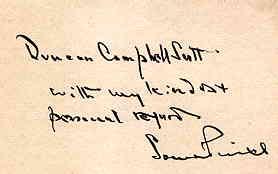 Duncan Campbell Scott
with my kindest
personal regards